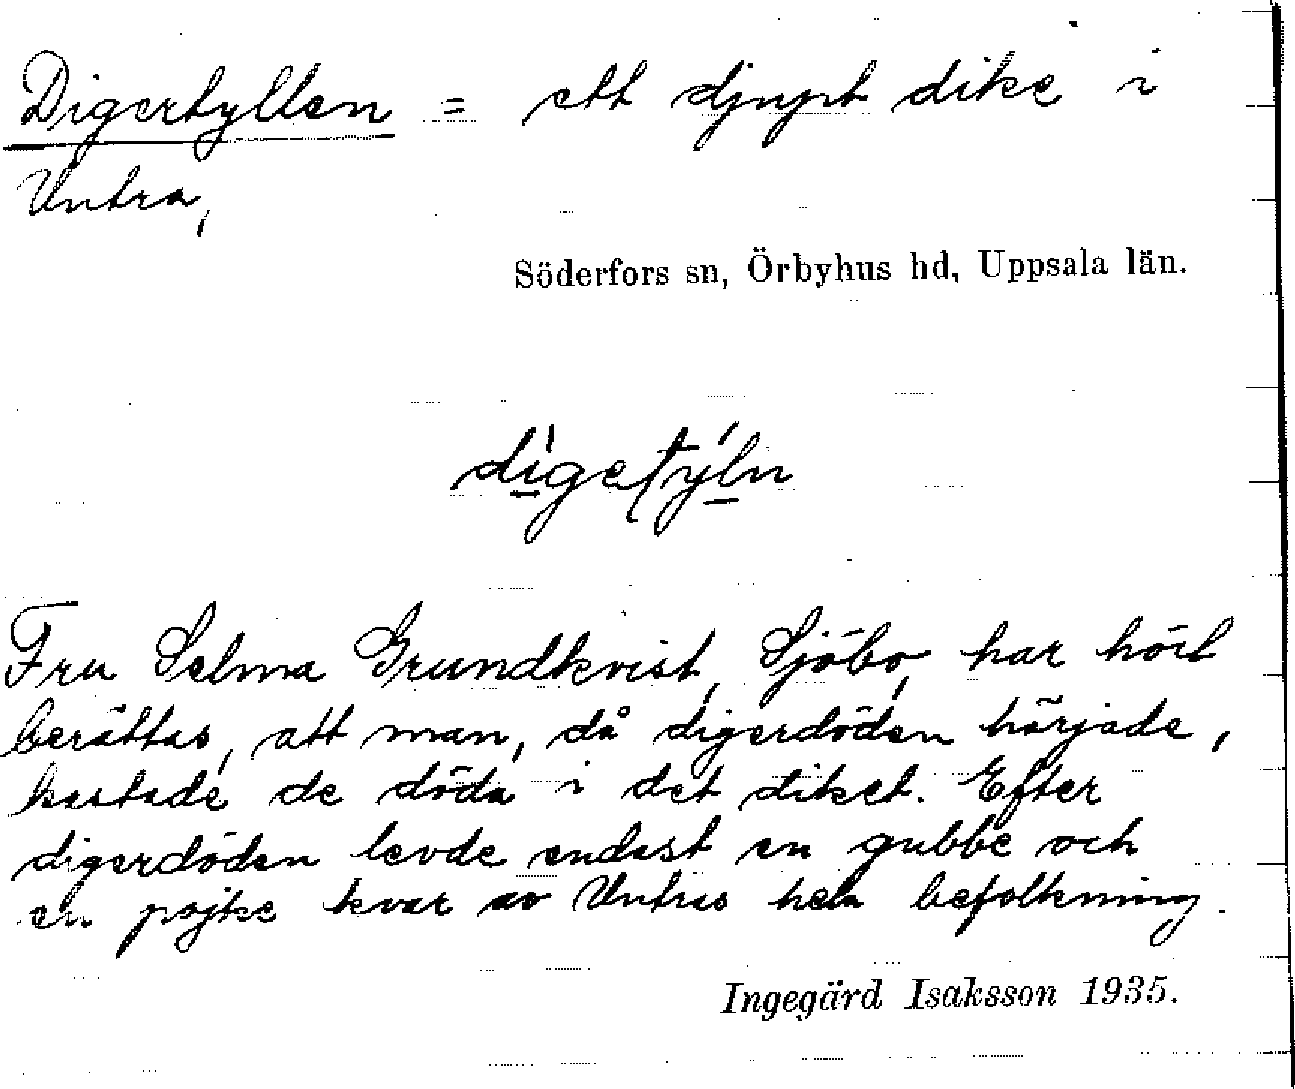 Digertyllen = ett djupt dike i
Untra,
Söderfors sn, Örbyhus hd, Uppsala län.
Fru Selma Grundkvist, Sjöbo, har hört
berättas, att man, då digerdöden härjade,
kastade de döda i det diket. Efter
digerdöden levde endast en gubbe och
en pojke kvar av Untras hela befolkning.
Ingegärd Isaksson 1935.